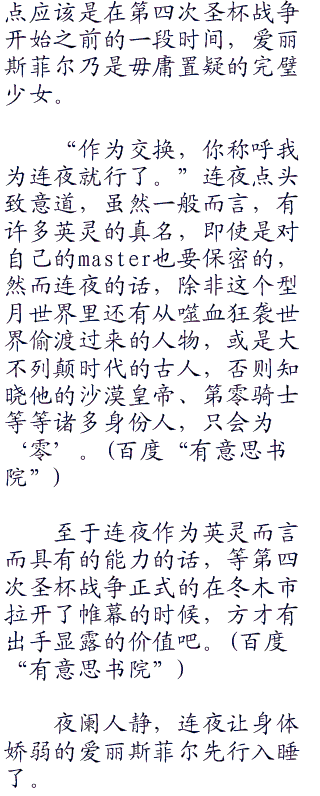 点应该是在第四次圣杯战争
开始之前的一段时间，爱丽
斯菲尔乃是毋庸置疑的完璧
少女。
“作为交换，你称呼我
为连夜就行了。”连夜点头
致意道，虽然一般而言，有
许多英灵的真名，即使是对
自己的master也要保密的，
然而连夜的话，除非这个型
月世界里还有从噬血狂袭世
界偷渡过来的人物，或是大
不列颠时代的古人，否则知
晓他的沙漠皇帝、第零骑士
等等诸多身份人，只会为
‘零’。(百度“有意思书
院”)
至于连夜作为英灵而言
而具有的能力的话，等第四
次圣杯战争正式的在冬木市
拉开了帷幕的时候，方才有
出手显露的价值吧。(百度
“有意思书院”)
夜阑人静，连夜让身体
娇弱的爱丽斯菲尔先行入睡
了。